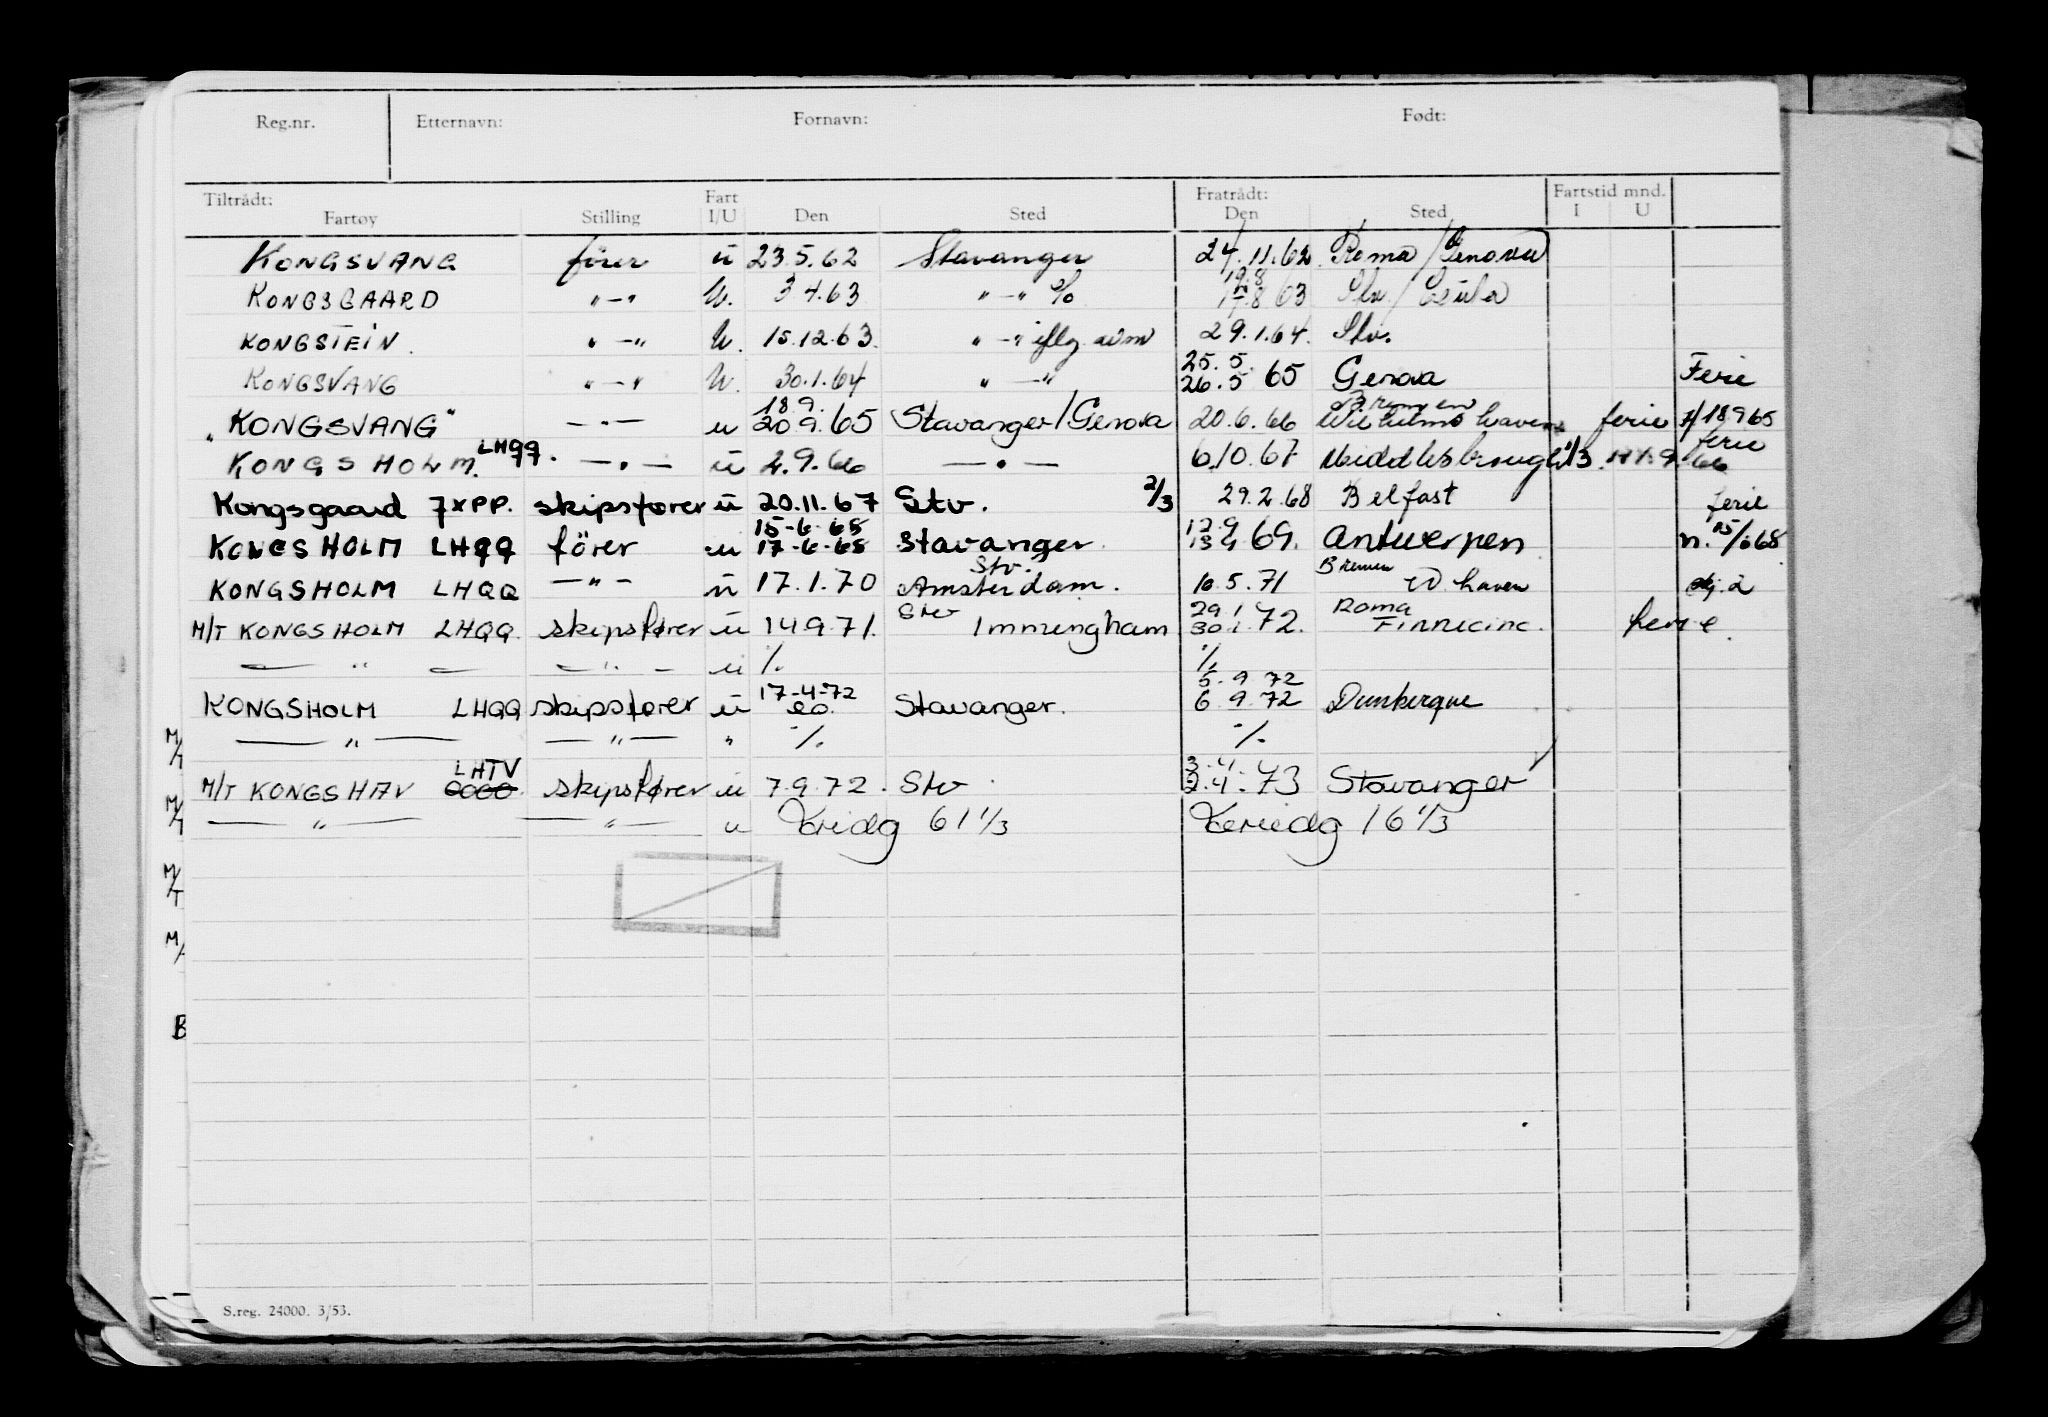 Reg.nr. Etternavn: Fornavn: Født:
Tiltrådt: Fart Fratrådt: Fartstid mnd.
Fartøy Stilling I/U Den Sted Den Sted I U
KONGSVANG fører u 23.5.62 Stavanger 24.11.62 Roma/Genova
KONGSGAARD "-" U. 3 4.63 "-" % 8 63 Stv /
KONGSTEIN. "-" U. 15.12.63. "-" 29.1.64. Stv.
25.5.
KONGSVANG "-" U. 30.1.64 "-" 26.5 65 Genova Ferie
18 9. Bremen
"KONGSVANG" -"- u 20 9.65 Stavanger/Genova 20.6.66 Wilhelmshaven ferie 18965
LHQQ. ferie
KONGSHOLM. -"- u 2.9.66 -"- 6.10.67 Middlesbrough 1/3 66
Kongsgaard 7XPP. skipsfører u 20.11.67 Stv. 2/3 29.2.68 Belfast ferie
15-6-65 12.9
KONGSHOLM LHQQ fører u 17-6-68 Stavanger. 13 69. Antwerpen n. 15/668
Stv. Bremen
KONGSHOLM LHQQ -"- u 17.1.70 Amsterdam. 10.5.71 W haven
Stv 29.1 Roma
M/T KONGSHOLM LHQQ. skipsfører u 14.9.71. Immingham 30.1.72. Fiumicino. ferie.
-"- -"- u %. %.
17-4-72 5.9 72
KONGSHOLM LHQQ skipsfører u 20. Stavanger. 6.9.72 Dunkerque
-"- -"- " %. %.
LHTV 3.4
M/T KONGSHAV skipsfører u 7.9.72. Stv 2.4.73 Stavanger
-"- -"- u Fridg 61 1/3 Feriedg 16 1/3
M/T
M/T
M/T
M/
B
S.reg. 24000. 3/53.